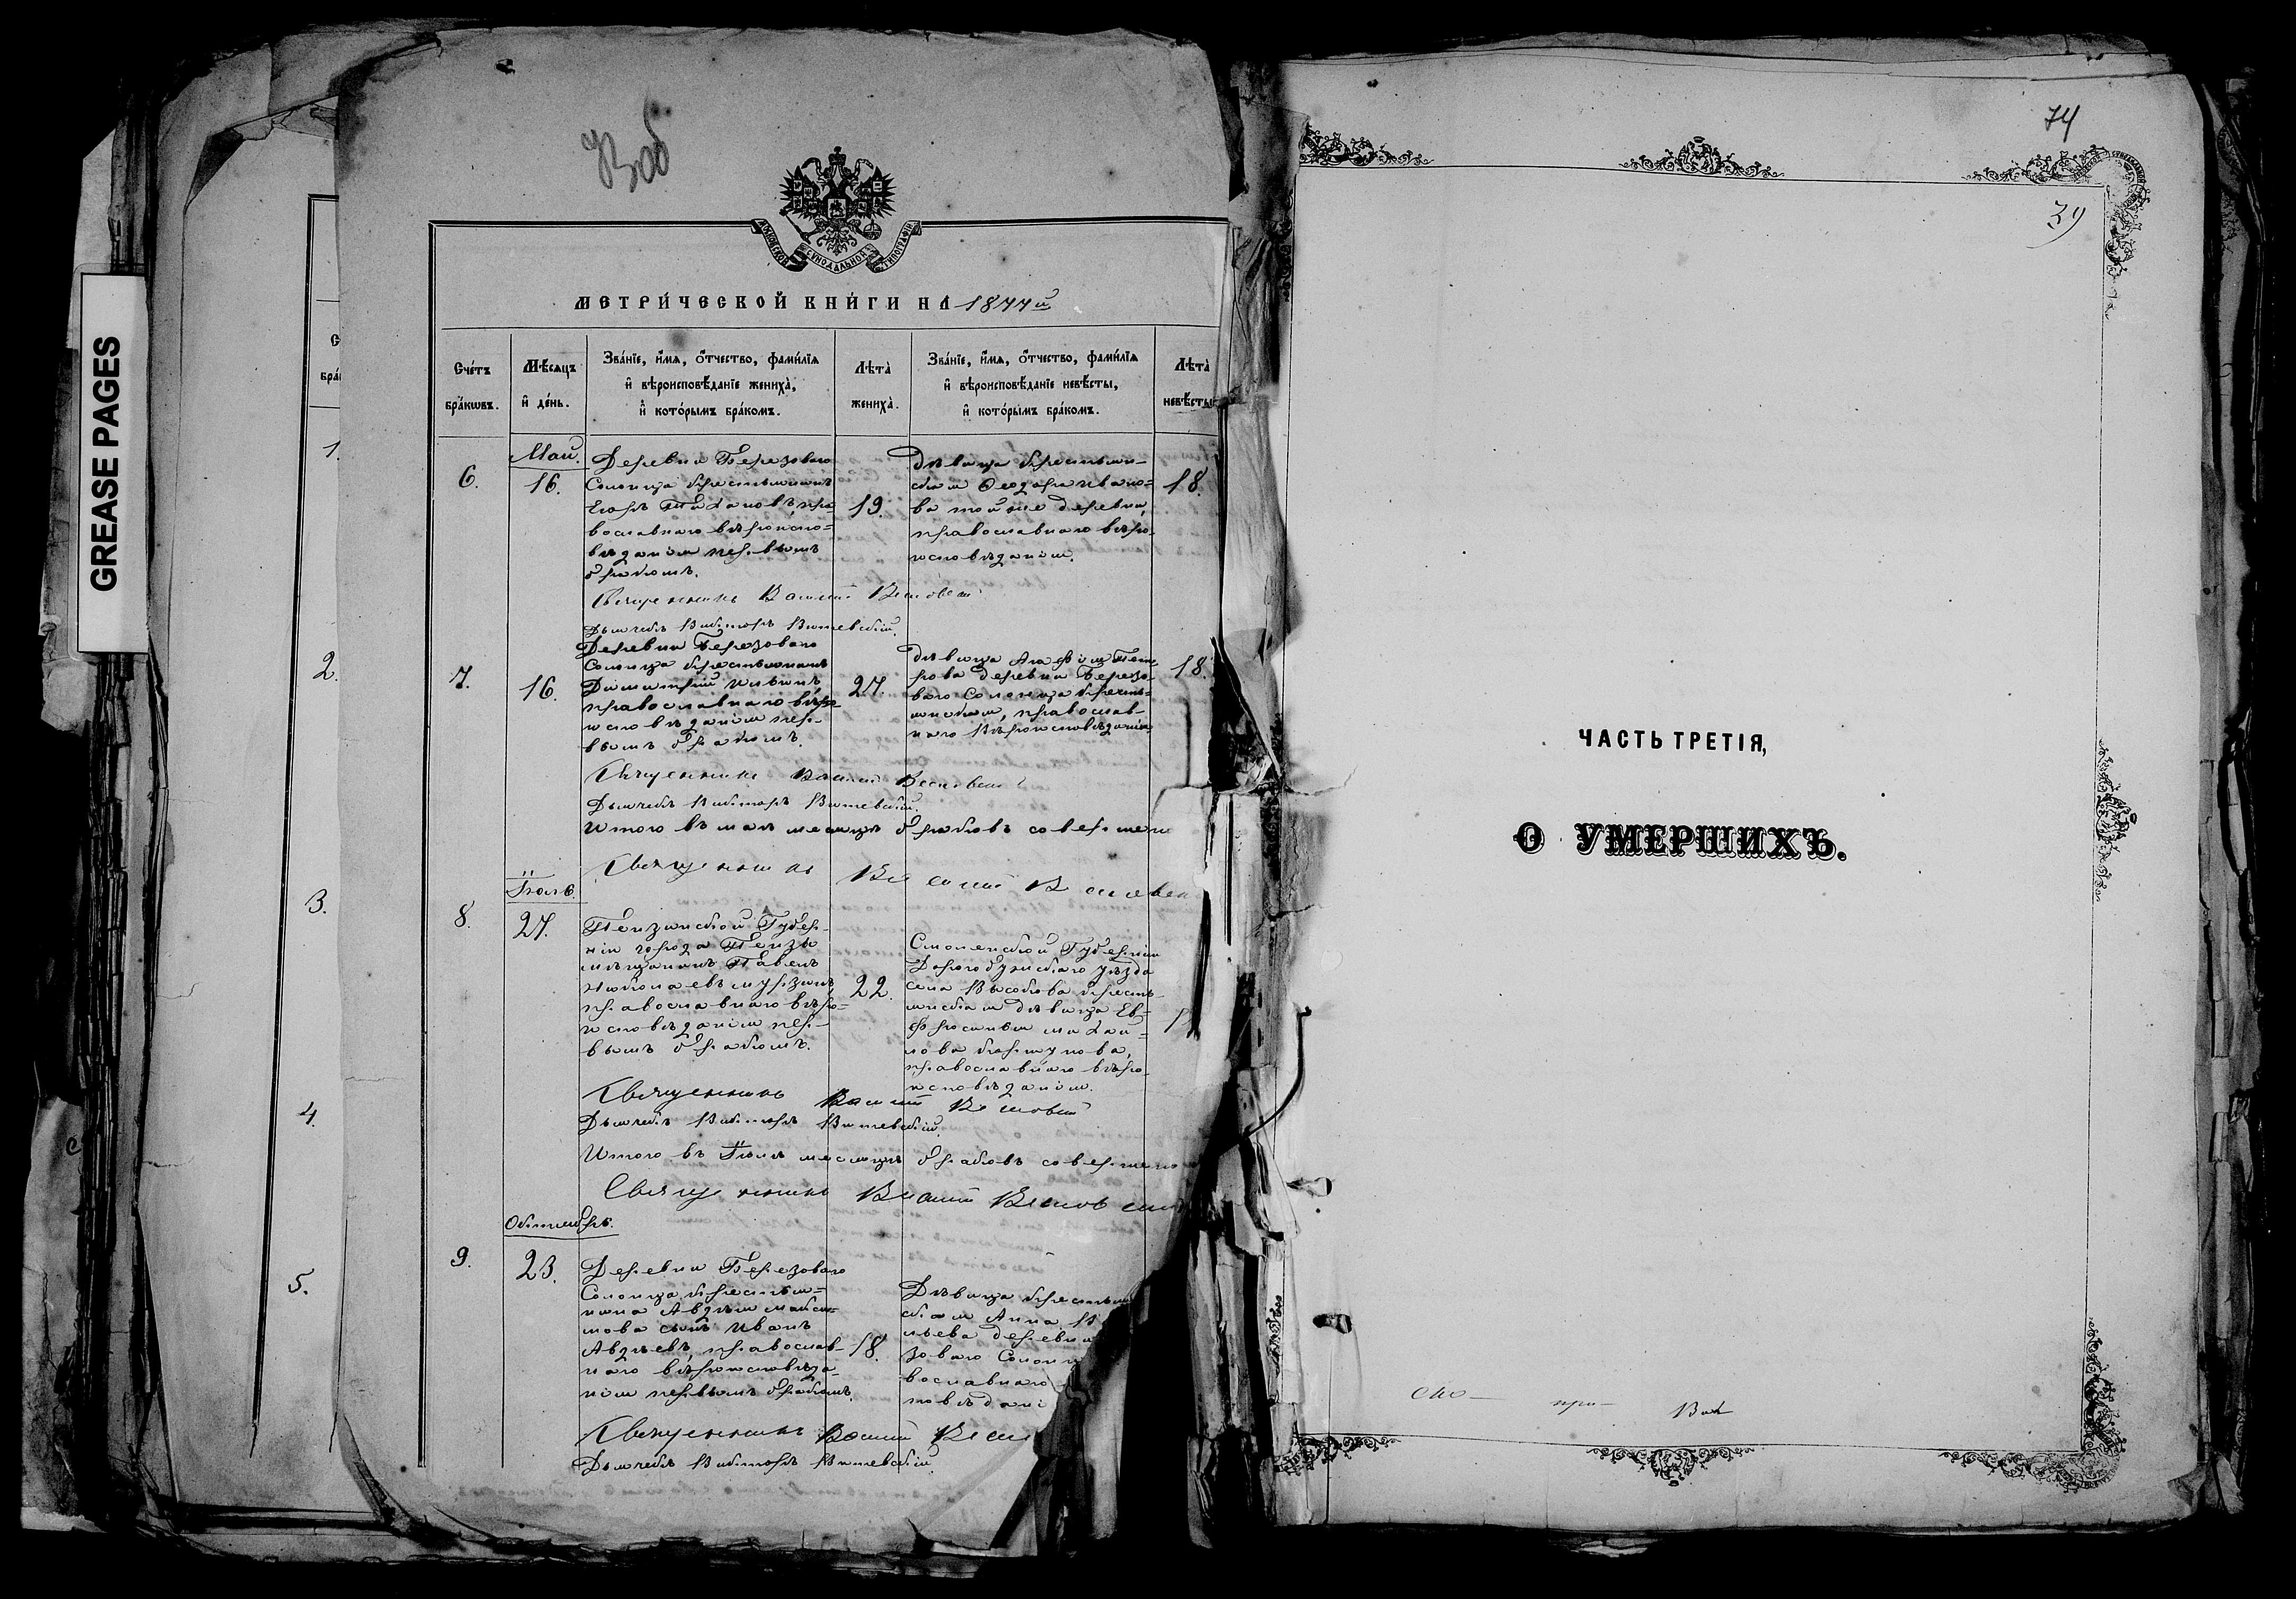 GREASE PAGES
Воб
МОСКОВСКОЙ СУНОДАЛЬНОЙ ТИПОГРАФІИ
МЕТРИ́ЧЕСКОЙ КНИ́ГИ НА 1877й
Сче́тъ бра́кωвъ.
Мѣ́сяцъ и҆ де́нь.
Зва́нїе, и҆́мя, ѻ҆́тчество, фами́лїя и҆ вѣроисповѣ́данїе жениха̀, и҆ кото́рымъ бра́комъ.
Лѣта̀ жениха̀.
Зва́нїе, и҆́мя, ѻ҆́тчество, фами́лїя и҆ вѣроисповѣ́данїе невѣ́сты, и҆ кото́рымъ бра́комъ.
Лѣта̀ невѣ́сты
1.
2.
3.
4.
5.
6.
Май.
16.
Деревни Березоваго
Солонца крестьянинъ
Егоръ Тихановъ, пра-
вославнаго вѣроиспо-
вѣданія первымъ
бракомъ.
19.
Дѣвица крестьян-
ская Ѳеодора Ивано-
ва той же деревни,
православнаго вѣро-
исповѣданія.
18.
Священникъ Василий
Дьячекъ Викторъ Витевскій.
7.
16.
Деревни Березоваго
Солонца крестьянинъ
Димитрій Ильинъ,
православнаго вѣро-
исповѣданія пер-
вымъ бракомъ.
27.
Дѣвица Агафія Пет-
рова деревни Березо-
ваго Солонца крестья-
нская, православ-
наго вѣроисповѣданія.
18.
Священникъ Василий
Дьячекъ Викторъ Витевскій.
Итого въ маѣ месяцѣ браковъ совершено
Священникъ Василий
Іюль.
8.
27.
Пензинской Губер-
ніи города Пензы
мѣщанинъ Павелъ
Николаевъ Мурзинъ,
православнаго вѣро-
исповѣданія пер-
вымъ бракомъ.
22.
Смоленской Губерніи
Дорогобужскаго уѣзда
села Высокова кресть-
янская дѣвица Ев-
фросинья Михай-
лова
православнаго вѣро-
исповѣданія.
Священникъ Василий
Дьячекъ Викторъ Витевскій.
Итого въ Іюлѣ месяцѣ браковъ совершено
Священникъ Василий
Октябрь.
9.
23.
Деревни Березоваго
Солонца крестьян-
нина Авдѣя Макси-
мова сынъ Иванъ
Авдѣевъ, православ-
наго вѣроисповѣда-
нія первымъ бракомъ.
18.
Дѣвица крестьян
ская Анна В
льева деревни
зоваго Солонц
вославнаго
повѣдані
Священникъ Василий
Дьячекъ Викторъ Витевскій.
74
39
ЧАСТЬ ТРЕТІЯ,
О УМЕРШИХЪ.
про-